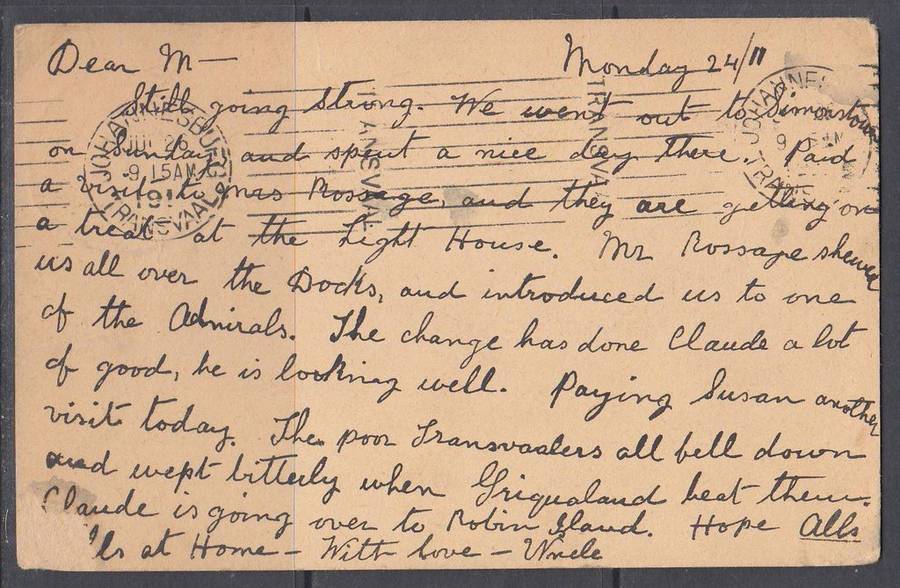 Dear M—
Monday 24/11
Still going strong. We went out to Simonstown
on Sunday, and spent a nice day there. Paid
a visit to Mrs Rossage, and they are getting on
a treat at the Light House. Mr Rossage shewed
us all over the Docks, and introduced us to one
of the Admirals. The change has done Claude a lot
of good, he is looking well. Paying Susan another
visit today. The poor Transvaalers all fell down
and wept bitterly when Griqualand beat them.
Claude is going over to Robin Island. Hope Alls
at Home — With love — Uncle
JOHANNESBURG
JUL 26
9.15AM
191
TRANSVAAL
TRANSVAAL
TRANSVAAL
JOHANNES
9 AM
TRANS